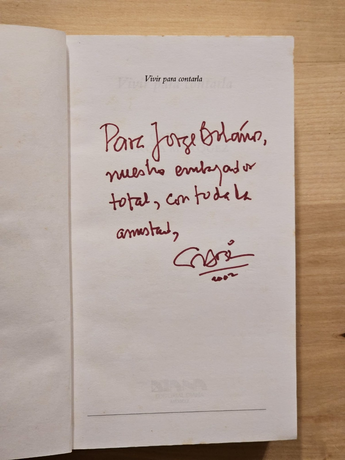 Vivir para contarla
Para Jorge Bolaños,
nuestro embajador
total, con toda la
amistad,
Gabo
2002